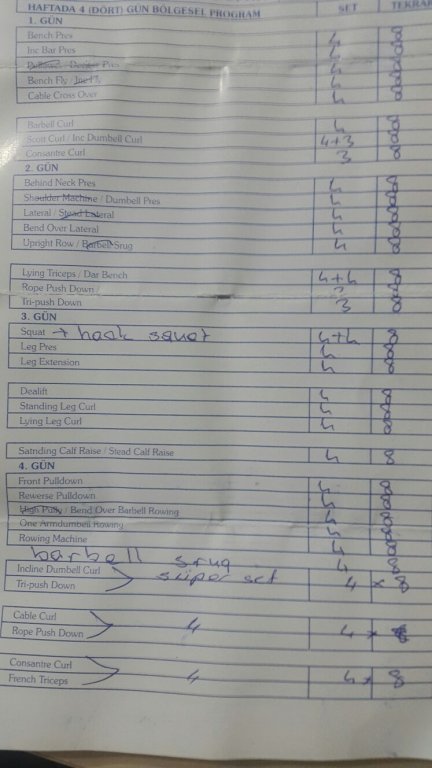 HAFTADA 4 (DÖRT) GÜN BÖLGESEL PROGRAM SET TEKRAR
1. GÜN
Bench Pres 4 8
Inc Bar Pres 4 8
Pres 4 8
Bench Fly / Inc Fly 4 8
Cable Cross Over 4 8
Barbell Curl 4 8
Scott Curl / Inc Dumbell Curl 4+3 8
Consantre Curl 3 8
2. GÜN
Behind Neck Pres 4 8
Shoulder Machine / Dumbell Pres 4 8
Lateral / Stead Lateral 4 8
Bend Over Lateral 4 8
Upright Row / Barbell Srug 4 8
Lying Triceps / Dar Bench 4+4 8
Rope Push Down 3 8
Tri-push Down 3 8
3. GÜN
Squat + hack squat 4+4 8
Leg Pres 4 8
Leg Extension 4 8
Dealift 4 8
Standing Leg Curl 4 8
Lying Leg Curl 4 8
Satnding Calf Raise / Stead Calf Raise 4 8
4. GÜN
Front Pulldown 4 8
Rewerse Pulldown 4 8
High Pully / Bend Over Barbell Rowing 4 8
One Armdumbell Rowing 4 8
Rowing Machine 4 8
barbell srug 4 8
Incline Dumbell Curl süper set
Tri-push Down 4 x 8
Cable Curl
Rope Push Down 4 4 x
Consantre Curl
French Triceps 4 4 x 8